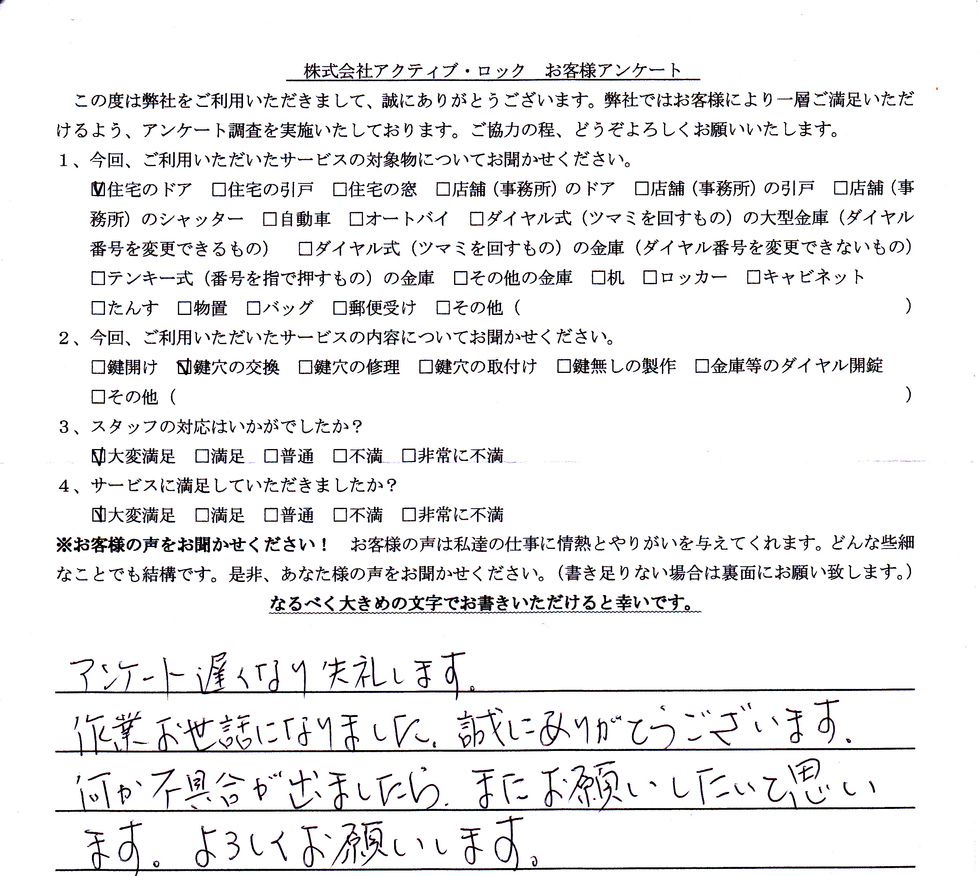 株式会社アクティブ・ロック　お客様アンケート
この度は弊社をご利用いただきまして、誠にありがとうございます。弊社ではお客様により一層ご満足いただ
けるよう、アンケート調査を実施いたしております。ご協力の程、どうぞよろしくお願いいたします。
1、今回、ご利用いただいたサービスの対象物についてお聞かせください。
☑住宅のドア　□住宅の引戸　□住宅の窓　□店舗（事務所）のドア　□店舗（事務所）の引戸　□店舗（事
務所）のシャッター　□自動車　□オートバイ　□ダイヤル式（ツマミを回すもの）の大型金庫（ダイヤル
番号を変更できるもの）　□ダイヤル式（ツマミを回すもの）の金庫（ダイヤル番号を変更できないもの）
□テンキー式（番号を指で押すもの）の金庫　□その他の金庫　□机　□ロッカー　□キャビネット
□たんす　□物置　□バッグ　□郵便受け　□その他（　　　）
2、今回、ご利用いただいたサービスの内容についてお聞かせください。
□鍵開け　☑鍵穴の交換　□鍵穴の修理　□鍵穴の取付け　□鍵無しの製作　□金庫等のダイヤル開錠
□その他（　　　）
3、スタッフの対応はいかがでしたか？
☑大変満足　□満足　□普通　□不満　□非常に不満
4、サービスに満足していただきましたか？
☑大変満足　□満足　□普通　□不満　□非常に不満
※お客様の声をお聞かせください！　お客様の声は私達の仕事に情熱とやりがいを与えてくれます。どんな些細
なことでも結構です。是非、あなた様の声をお聞かせください。（書き足りない場合は裏面にお願い致します。）
なるべく大きめの文字でお書きいただけると幸いです。
アンケート遅くなり失礼します。
作業お世話になりました。誠にありがとうございます。
何か不具合が出ましたら、またお願いしたいと思い
ます。よろしくお願いします。